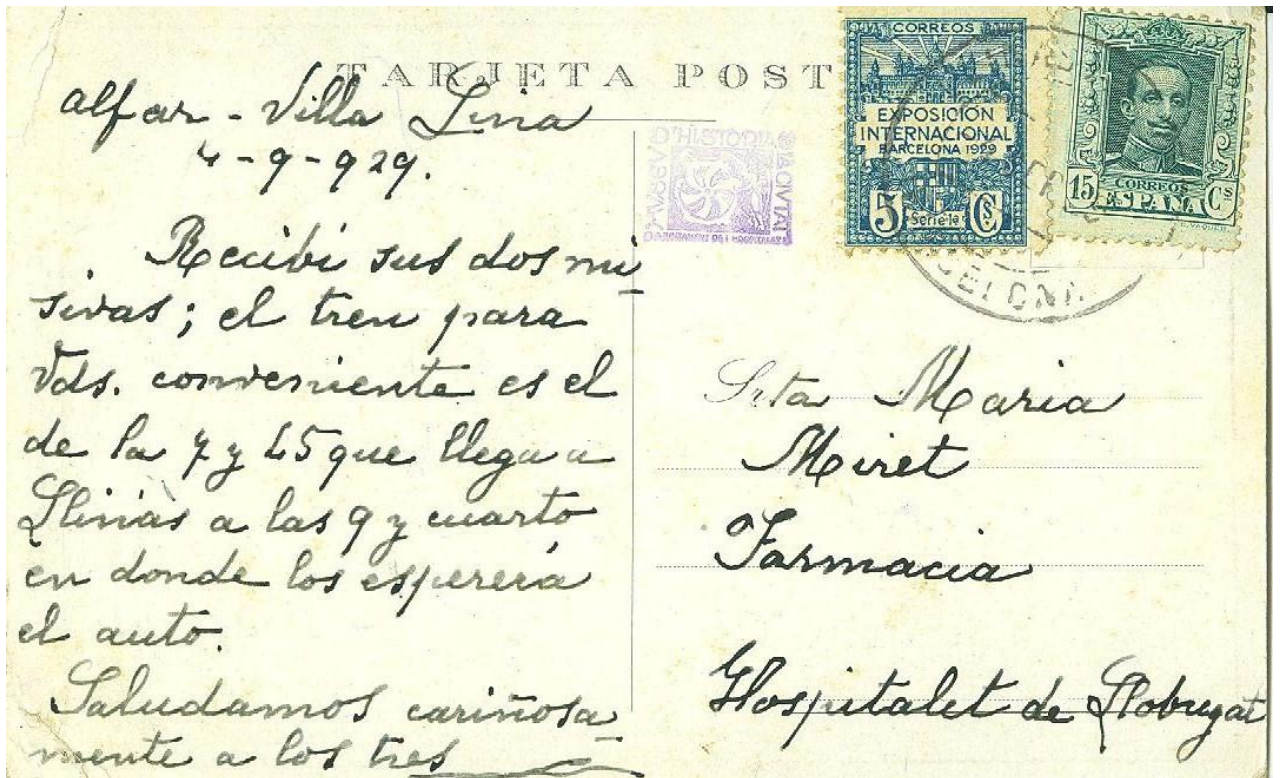 TARJETA POST
alfar - Villa Lina
4-9-929.
Recibi sus dos mi
sivas; el tren para
Vds. conveniente es el
de la 7 y 45 que llega a
Llinás a las 9 y cuarto
en donde los espererá
el auto.
Saludamos cariñosa
mente a los tres
CORREOS
EXPOSICIÓN
INTERNACIONAL
BARCELONA 1929
5 Cs
Serie 1a
15 CORREOS Cs
ESPAÑA
D'HISTÒRIA
Srta Maria
Miret
Farmacia
Hospitalet de Llobregat